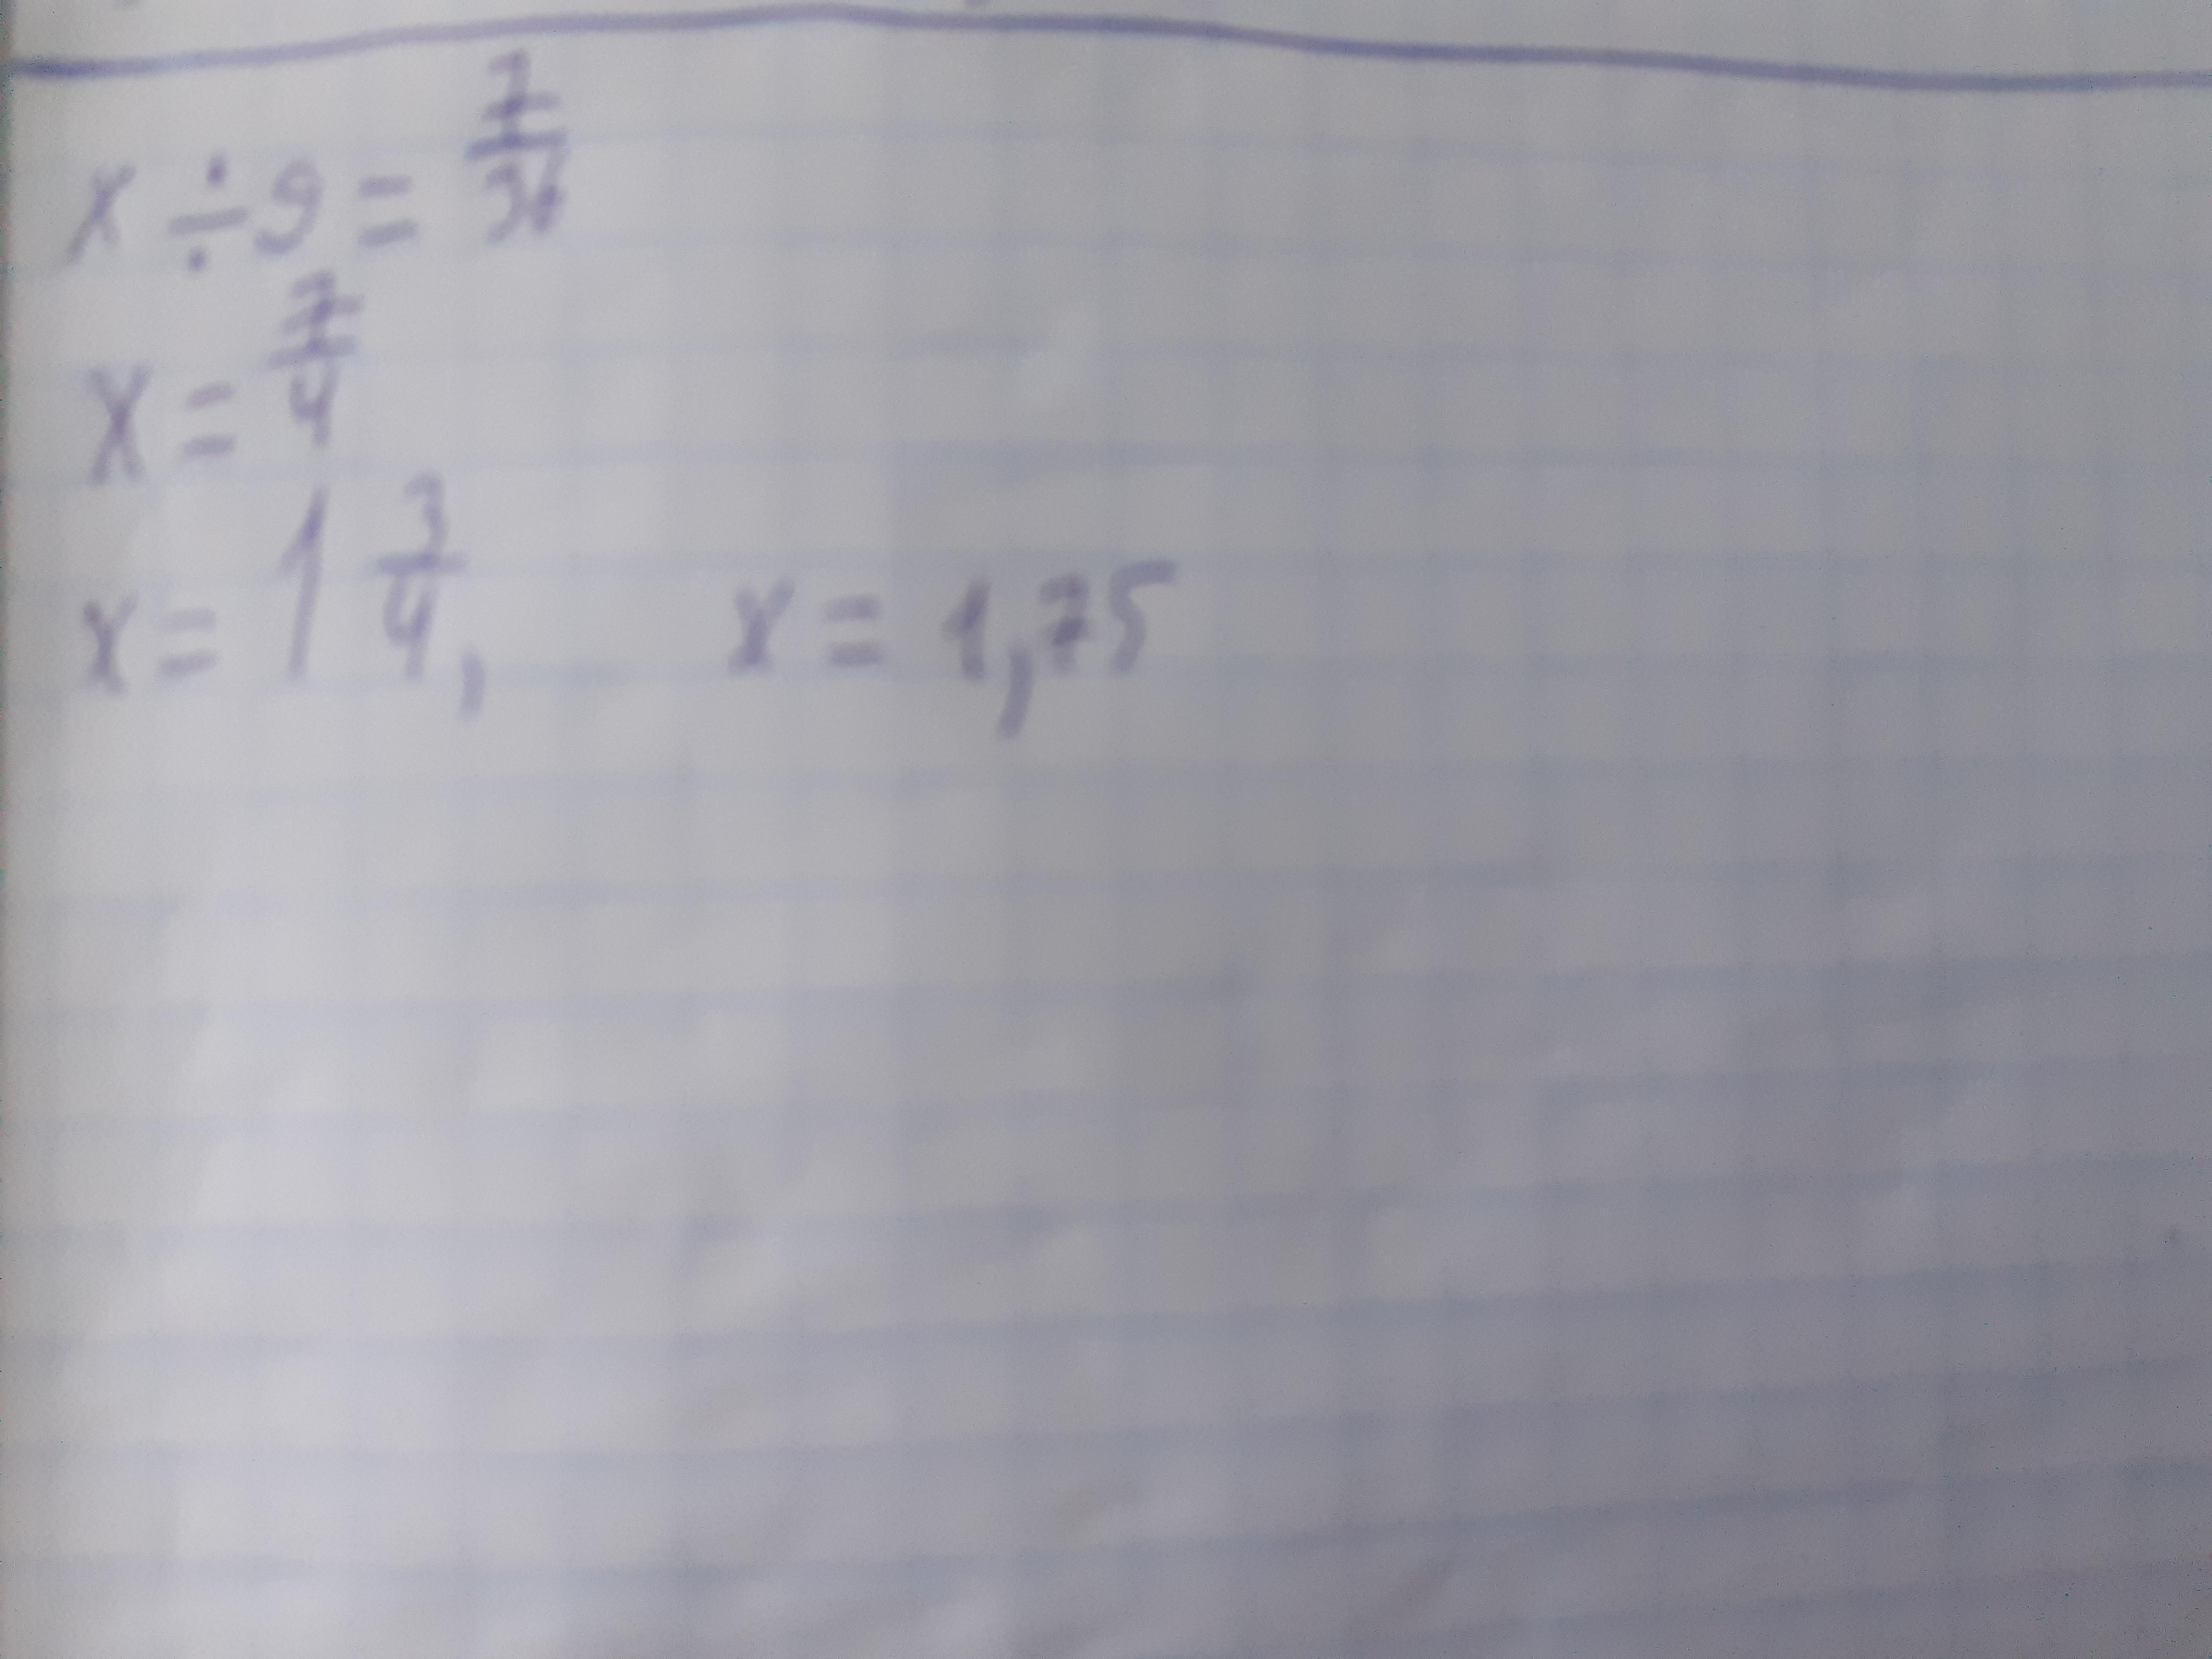 x ÷ 9 = 7/36
x = 7/4
x = 1 3/4, x = 1,75